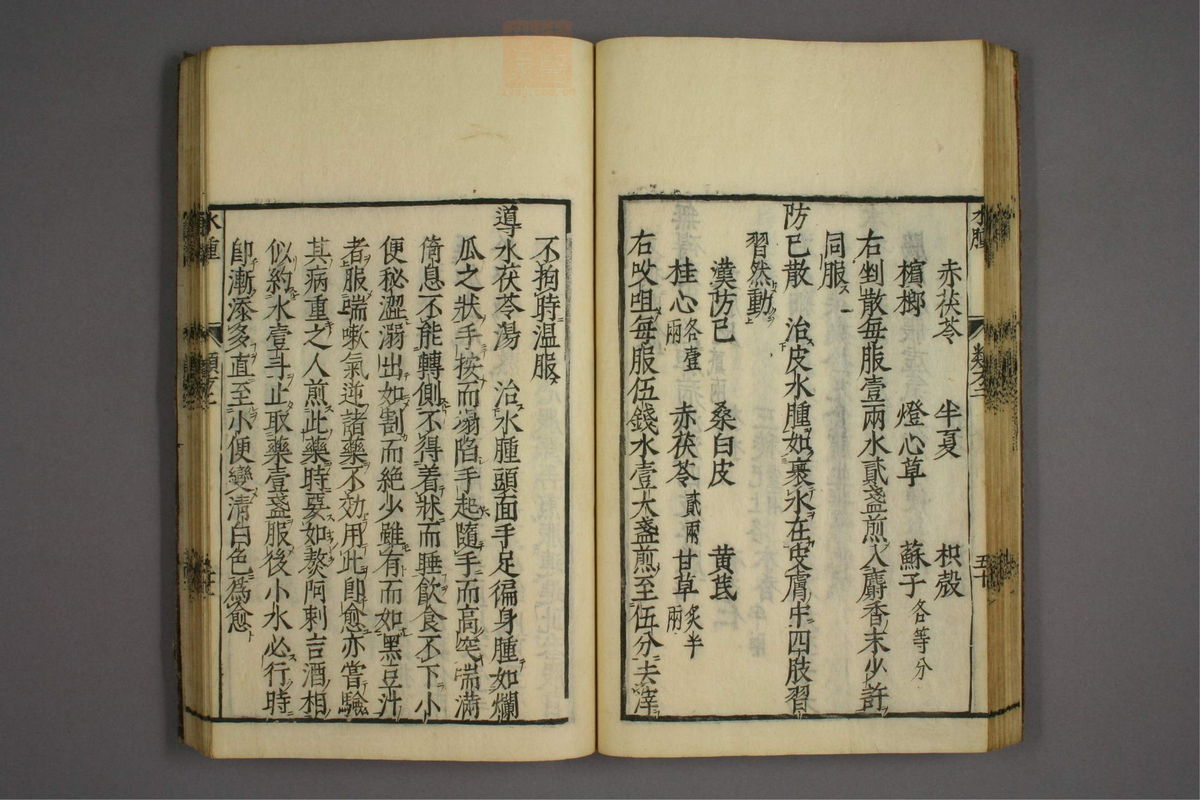 水腫 類方二 五十
赤茯苓 半夏 枳殼
檳榔 燈心草 蘇子各等分
右剉散每服壹兩水貳盞煎入麝香末少許
同服
防已散 治皮水腫如裹水在皮膚中四肢習
習然動
漢防已 桑白皮 黄芪
桂心各壹兩 赤茯苓貳兩 甘草炙半兩
右㕮咀每服伍錢水壹大盞煎至伍分去滓
不拘時温服
導水茯苓湯 治水腫頭面手足徧身腫如爛
瓜之狀手按而塌陷手起隨手而高突喘滿
倚息不能轉側不得着牀而睡飲食不下小
便秘澀溺出如割而絶少雖有而如黑豆汁
者服喘嗽氣逆諸藥不効用此卽愈亦嘗驗
其病重之人煎此藥時要如熬阿剌吉酒相
似約水壹斗止取藥壹盞服後小水必行時
卽漸添多直至小便變清白色爲愈
水腫